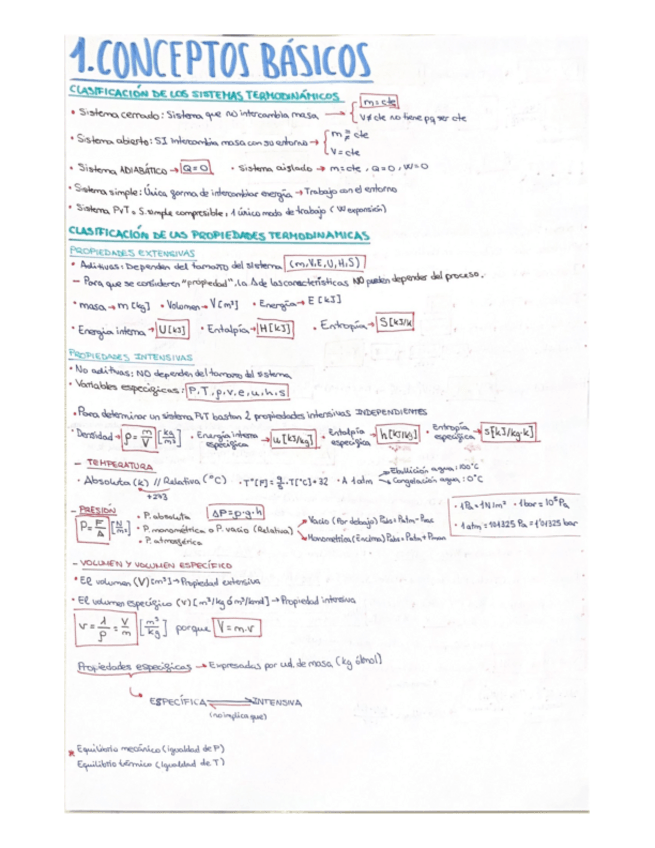 1.CONCEPTOS BÁSICOS
CLASIFICACIÓN DE LOS SISTEMAS TERMODINÁMICOS
• Sistema cerrado: Sistema que no intercambia masa → { m=cte
V≠cte no tiene pq ser cte
• Sistema abierto: SI Intercambia masa con su entorno → { m ≠ cte
V=cte
• Sistema ADIABÁTICO → Q=0 • Sistema aislado → m=cte, Q=0, W=0
• Sistema simple: Única forma de intercambiar energía → Trabajo con el entorno
• Sistema PVT = S. simple compresible, 1 único modo de trabajo (W expansión)
CLASIFICACIÓN DE LAS PROPIEDADES TERMODINAMICAS
PROPIEDADES EXTENSIVAS
• Aditivas: Dependen del tamaño del sistema (m,V,E,U,H,S)
– Para que se consideren "propiedad", la Δ de las características NO pueden depender del proceso.
• masa → m [kg] • Volumen → V [m³] • Energía → E [kJ]
• Energía interna → U [kJ] • Entalpía → H [kJ] • Entropía → S [kJ/k]
PROPIEDADES INTENSIVAS
• No aditivas: NO dependen del tamaño del sistema
• Variables específicas: P, T, ρ, v, e, u, h, s
• Para determinar un sistema PVT bastan 2 propiedades intensivas INDEPENDIENTES
• Densidad → ρ = m/V [kg/m³] • Energía interna específica → u [kJ/kg] • Entalpía específica → h [kJ/kg] • Entropía específica → s [kJ/kg·k]
– TEMPERATURA
• Absoluta (k) // Relativa (°C) • T°[F] = 9/5 · T[°C]+32 • A 1 atm → Ebullición agua: 100°C
→ Congelación agua: 0°C
+273
– PRESIÓN
P = F/A [N/m²]
• P. absoluta ΔP=ρ·g·h
• P. manométrica o P. vacío (Relativa)
• P. atmosférica
Vacío (Por debajo) Pabs = Patm - Pvac
Manometría (Encima) Pabs = Patm + Pman
• 1 Pa = 1 N/m² • 1 bar = 10⁵ Pa
• 1 atm = 101325 Pa = 1'01325 bar
– VOLUMEN Y VOLUMEN ESPECÍFICO
• El volumen (V) [m³] → Propiedad extensiva
• El volumen específico (v) [m³/kg ó m³/kmol] → Propiedad intensiva
v = 1/ρ = V/m [m³/kg] porque V = m·v
Propiedades específicas → Expresadas por ud. de masa (kg ó mol)
ESPECÍFICA INTENSIVA
(no implica que)
* Equilibrio mecánico (igualdad de P)
Equilibrio térmico (igualdad de T)